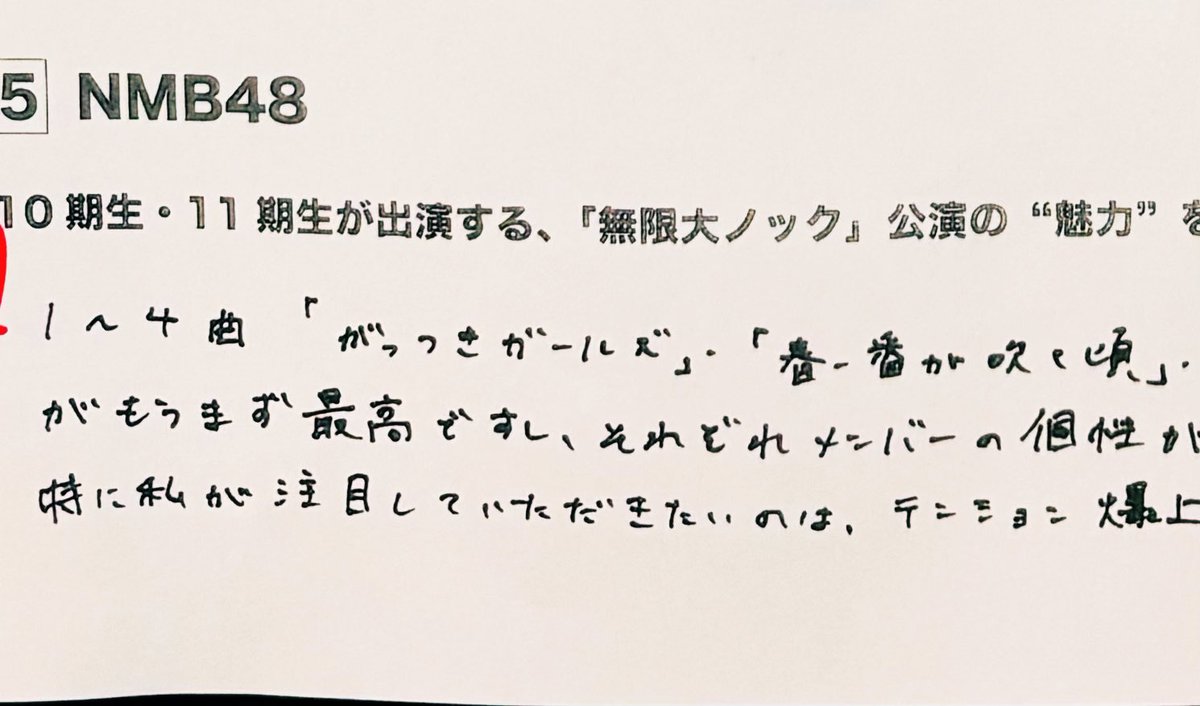 5 NMB48
10期生・11期生が出演する、「無限大ノック」公演の“魅力”を
1〜4曲「がっつきガールズ」・「春一番が吹く頃」・
がもうまず最高ですし、それぞれメンバーの個性が
特に私が注目していただきたいのは、テンション爆上